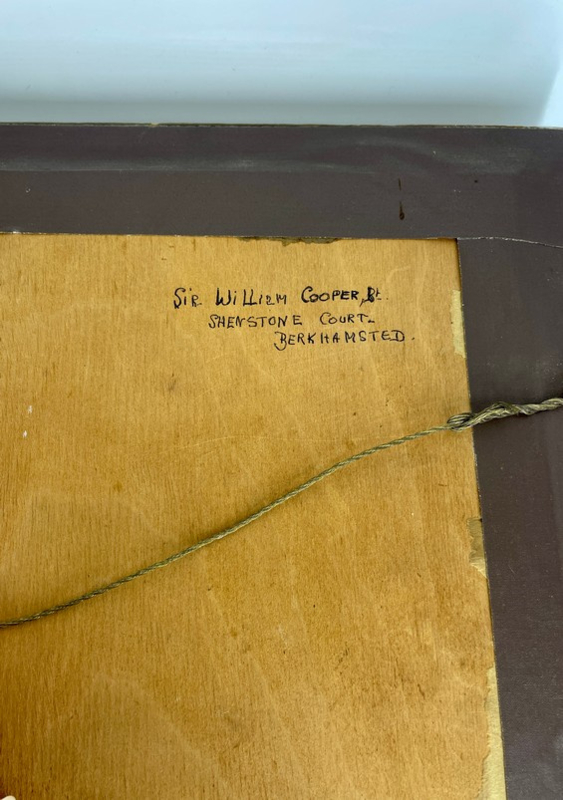 Sir William Cooper, Bt.
SHENSTONE COURT.
BERKHAMSTED.